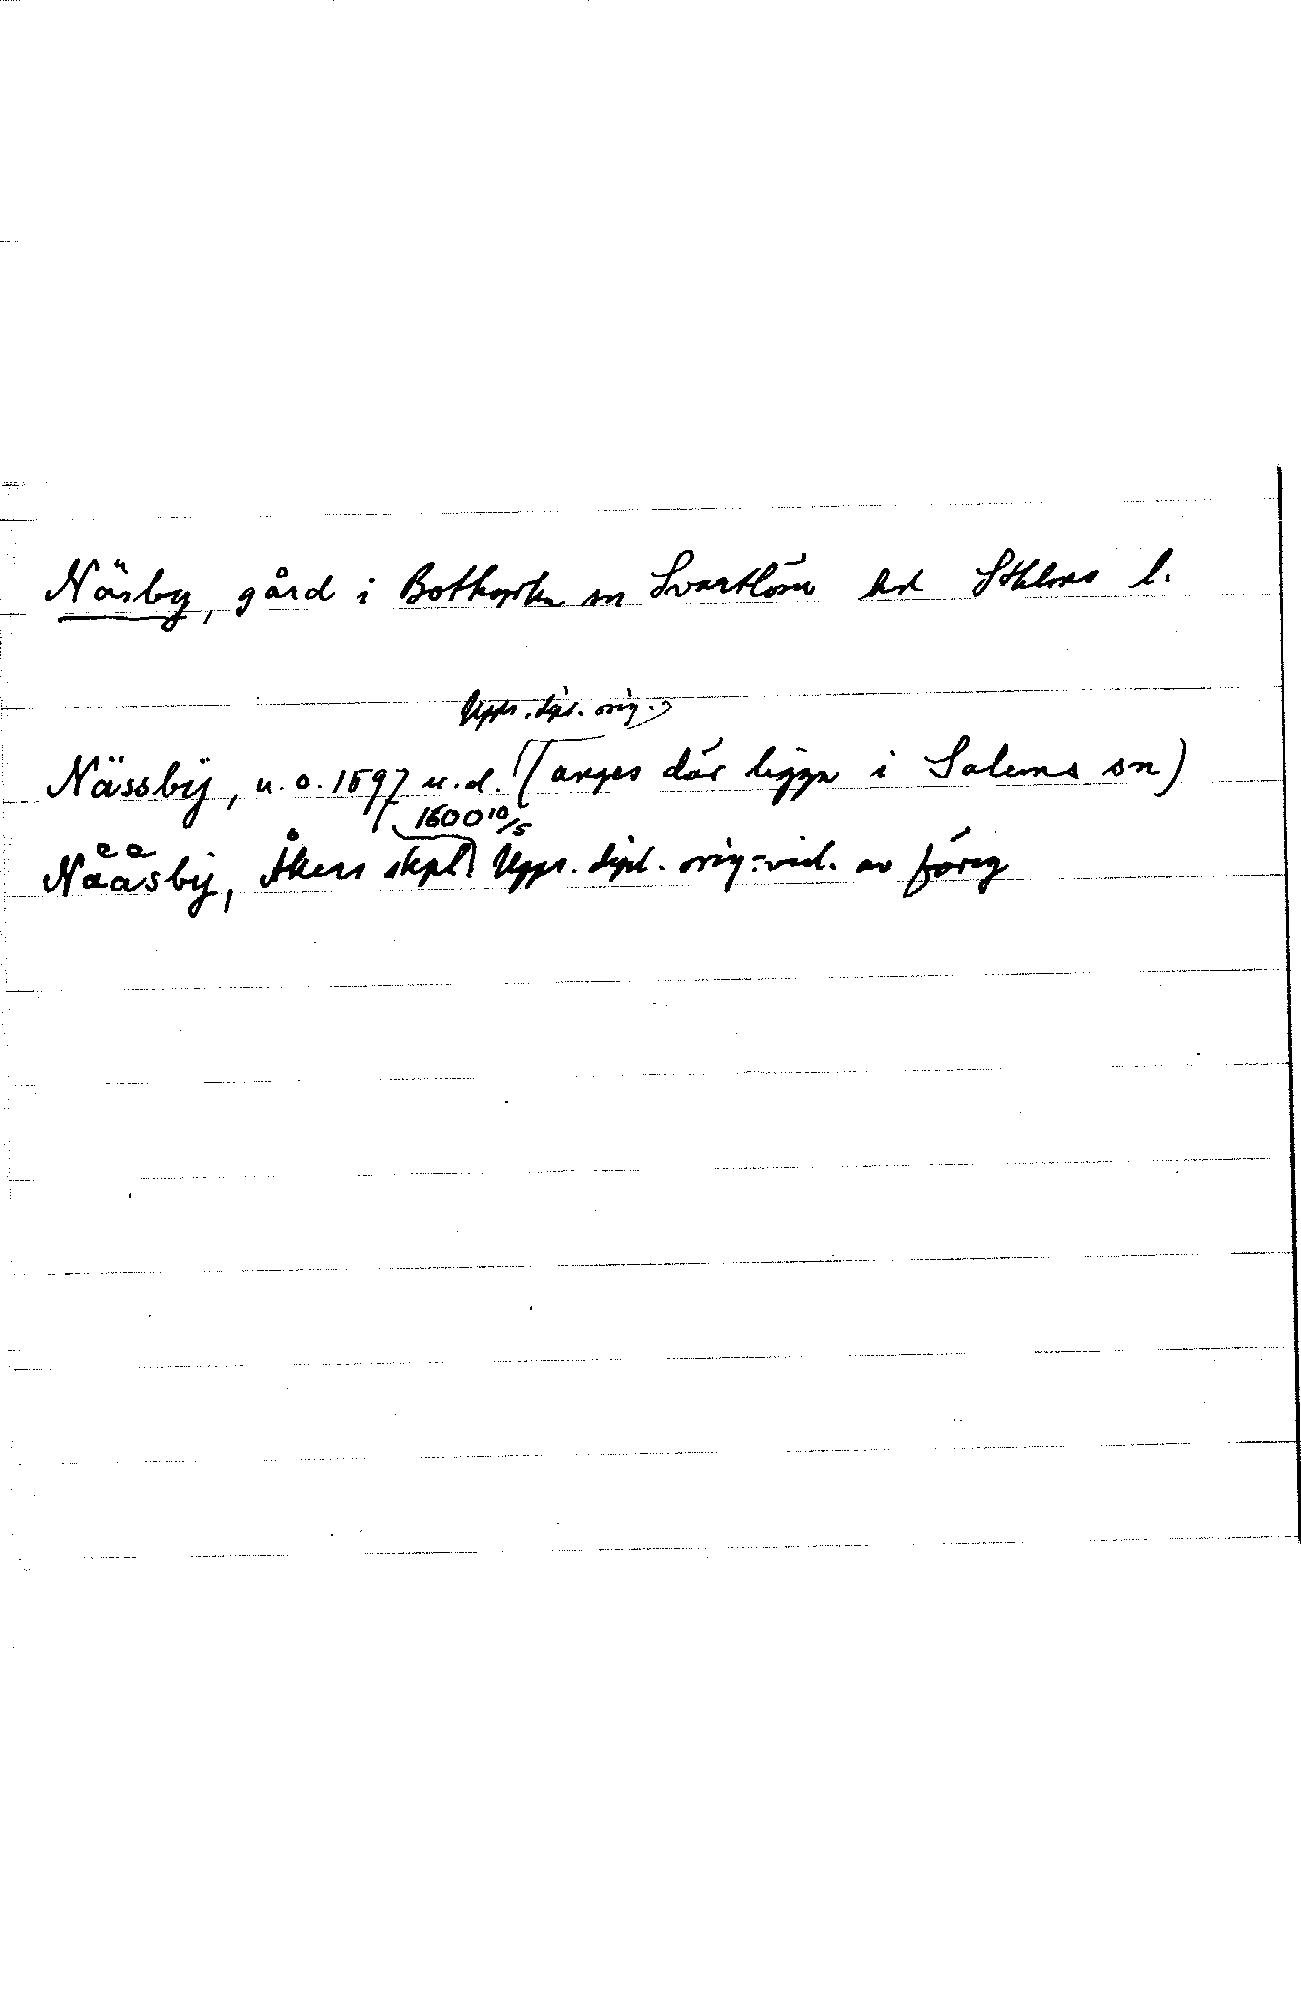 Näsby, gård i Botkyrka sn Svartlösa hd Sthlms l.
Upps. dipl. orig.
Nässbÿ, u. o. 1597 u. d. (anges där ligga i Salems sn)
1600 10/5
Naͤaͤsbÿ, Åkers skpl Upps. dipl. orig.-vid. av föreg